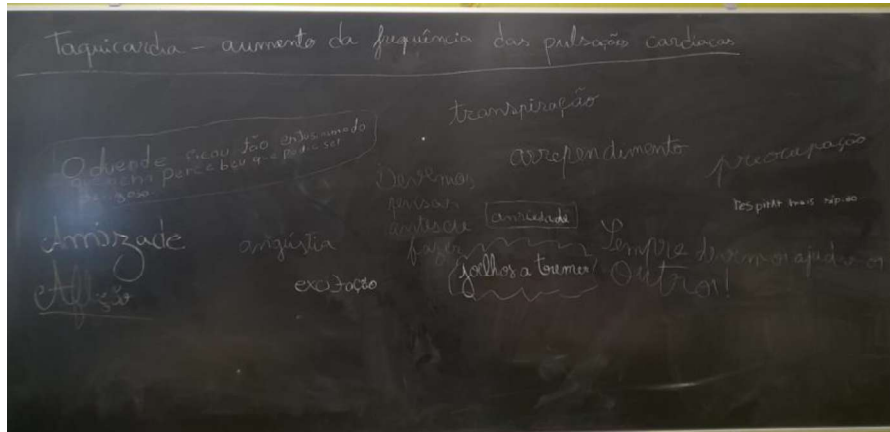 Taquicardia – aumento da frequência das pulsações cardíacas
transpiração
O duende ficou tão entusiasmado
que nem percebeu que podia ser
perigoso.
arrependimento
preocupação
Devemos
pensar
antes de
fazer
ansiedade
respirar mais rápido
Amizade
angústia
Sempre devemos ajudar os
outros!
joelhos a tremer
Aflição
excitação